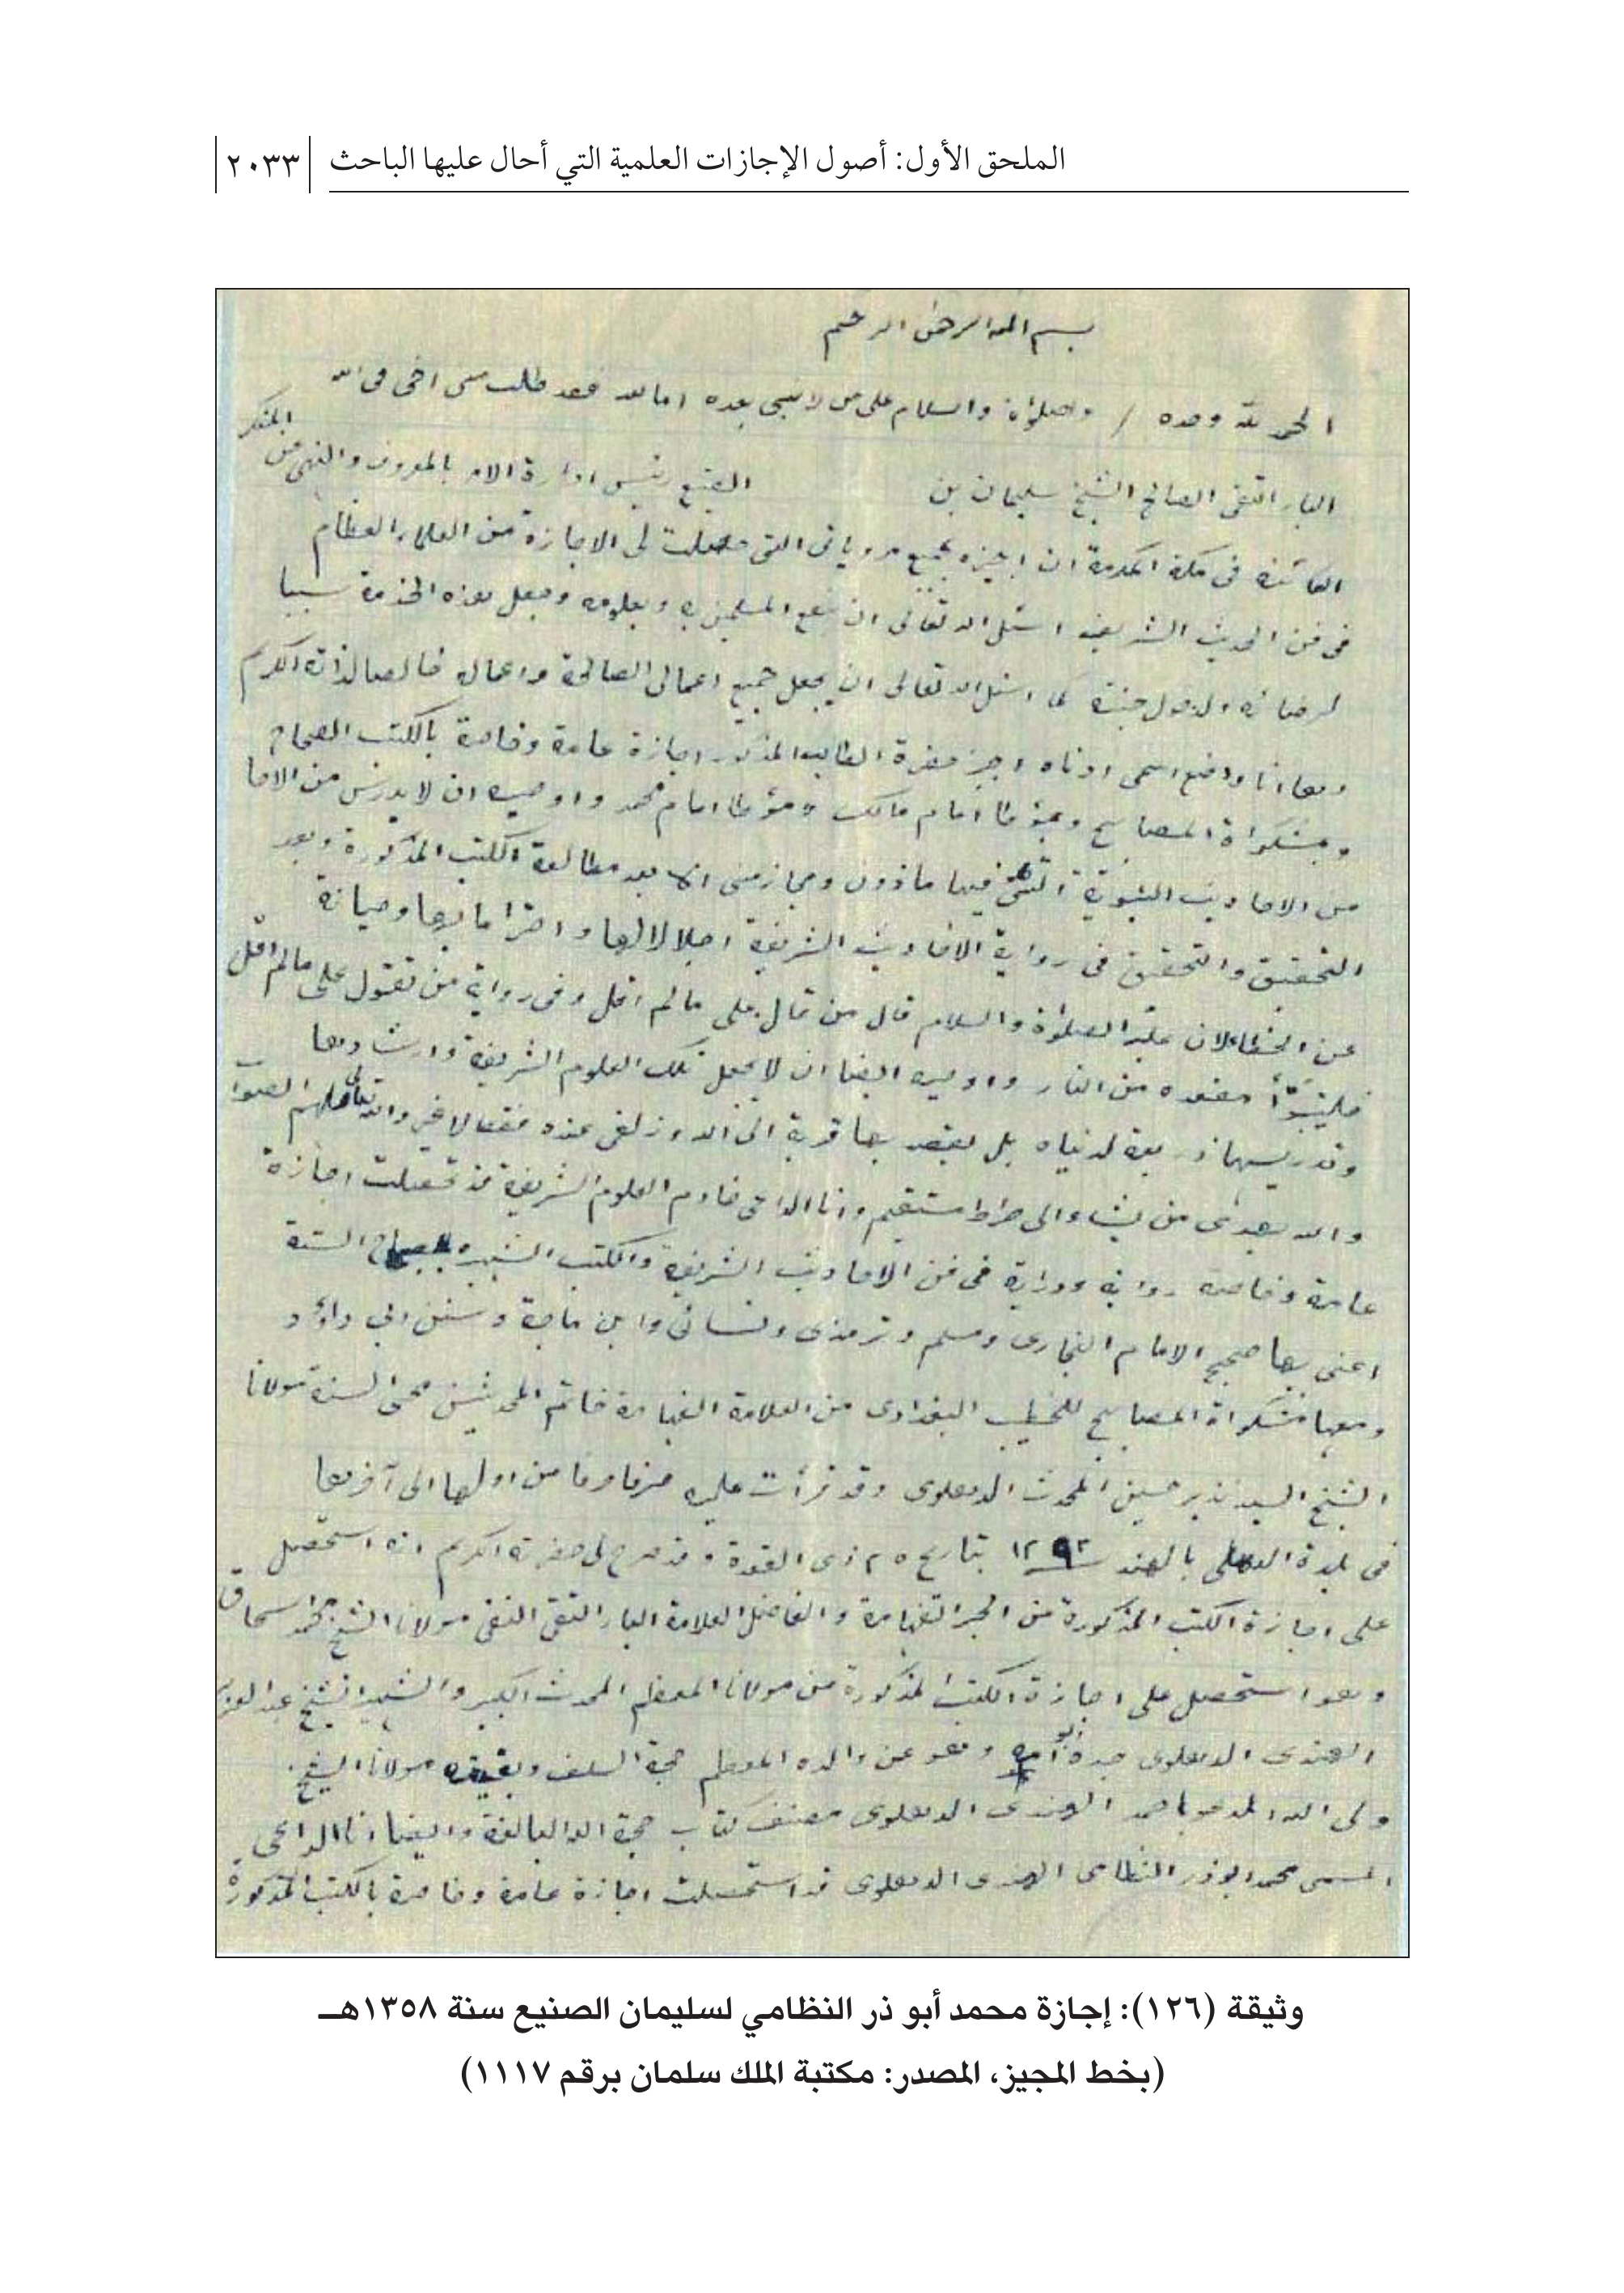 الملحق الأول: أصول الإجازات العلمية التي أحال عليها الباحث ٢٠٣٣
بسم الله الرحمن الرحيم
الحمد لله وحده / والصلوٰة والسلام على من لا نبي بعده اما بعد فقد طلب مني اخي في الله
البار التقى الصالح الشيخ سليمان بن الصنيع رئيس ادارة الامر بالمعروف والنهي عن المنكر
الكائنة في مكة المكرمة ان اجيزه بجميع مروياتى التى حصلت لى الاجازة من العلماء العظام
فى فن الحديث الشريف اسئل الله تعالى ان ينفع المسلمين به وبعلومه ويجعل هذه الخدمة سببا
لرضائه ولدخول جنته كما اسئل الله تعالى ان يجعل جميع اعمالى الصالحة واعماله خالصا لذاته الكريم
وها انا واضع اسمى ادناه اجيز حضرة الطالب المذكور اجازة عامة وخاصة بالكتب الصحاح
وبمشكواة المصابيح وبموطا امام مالك وموطا امام محمد واوصيه ان لا يدرس من الاحا
من الاحاديث النبوية التى فيها ماذون ومجاز منى الا بعد مطالعة الكتب المذكورة وبعد
التحقيق والتحقيق فى رواية الاحاديث الشريفة اجلالا لها واحتراما بها وصيانة
عن الخطا لان عليه الصلوٰة والسلام قال من قال على مالم اقل وفى رواية من تقول على مالم اقل
فليتبوّأ مقعده من النار واوصيه ايضا ان لا يجعل تلك العلوم الشريفة وارشادها
وتدريسها ذريعة لدنياه بل يقصد بها قربة الى الله وزلفى عنده فقط لا غير والله تعالى ملهم الصواب
والله يهدى من يشاء الى صراط مستقيم وانا الداعى خادم العلوم الشريفة قد تحصلت اجازة
عامة وخاصة رواية ودراية فى فن الاحاديث الشريفة والكتب الشهيرة بصحاح الستة
اعنى بها صحيح الامام البخارى ومسلم وترمذى ونسائى وابن ماجة وسنن ابي داؤد
ومعها مشكواة المصابيح للخطيب البغدادى من العلامة الفهامة خاتم المحدثين محى السنة مولانا
الشيخ السيد نذير حسين المحدث الدهلوى وقد قرأت عليه حرفا حرفا من اولها الى آخرها
فى بلدة الدهلى بالهند ١٢٩٣ بتاريخ ٢٥ ذى القعدة وقد صرح لى حضرته الكريم انه استحصل
على اجازة الكتب المذكورة من الحبر الفهامة والفاضل العلامة البار التقى النقى مولانا الشيخ محمد اسحاق
وهو استحصل على اجازة الكتب المذكورة من مولانا المعظم المحدث الكبير والشهير الشيخ عبد العزيز
الهندى الدهلوى جده ابو امه وهو عن والده المعظم حجة السلف وبقيته مولانا الشيخ
ولى الله المدعو باحمد الهندى الدهلوى مصنف كتاب حجة الله البالغة وايضا انا الداعى
المسمى محمد ابوذر النظامى الهندى الدهلوى قد استحصلت اجازة عامة وخاصة بالكتب المذكورة
وثيقة (١٢٦): إجازة محمد أبو ذر النظامي لسليمان الصنيع سنة ١٣٥٨هـ
(بخط المجيز، المصدر: مكتبة الملك سلمان برقم ١١١٧)